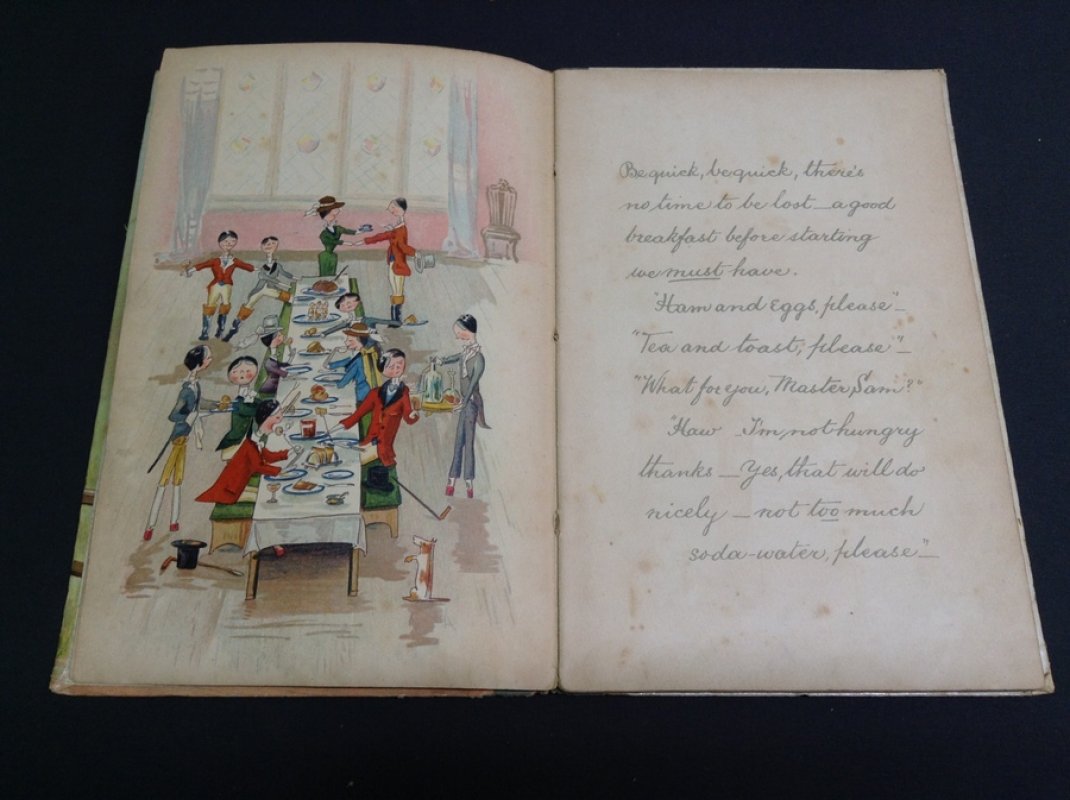 Be quick, be quick, there's
no time to be lost — a good
breakfast before starting
we must have.
"Ham and Eggs, please" —
"Tea and toast, please" —
"What for you, Master Sam?"
"Haw — I'm not hungry
thanks — Yes, that will do
nicely — not too much
soda-water, please" —